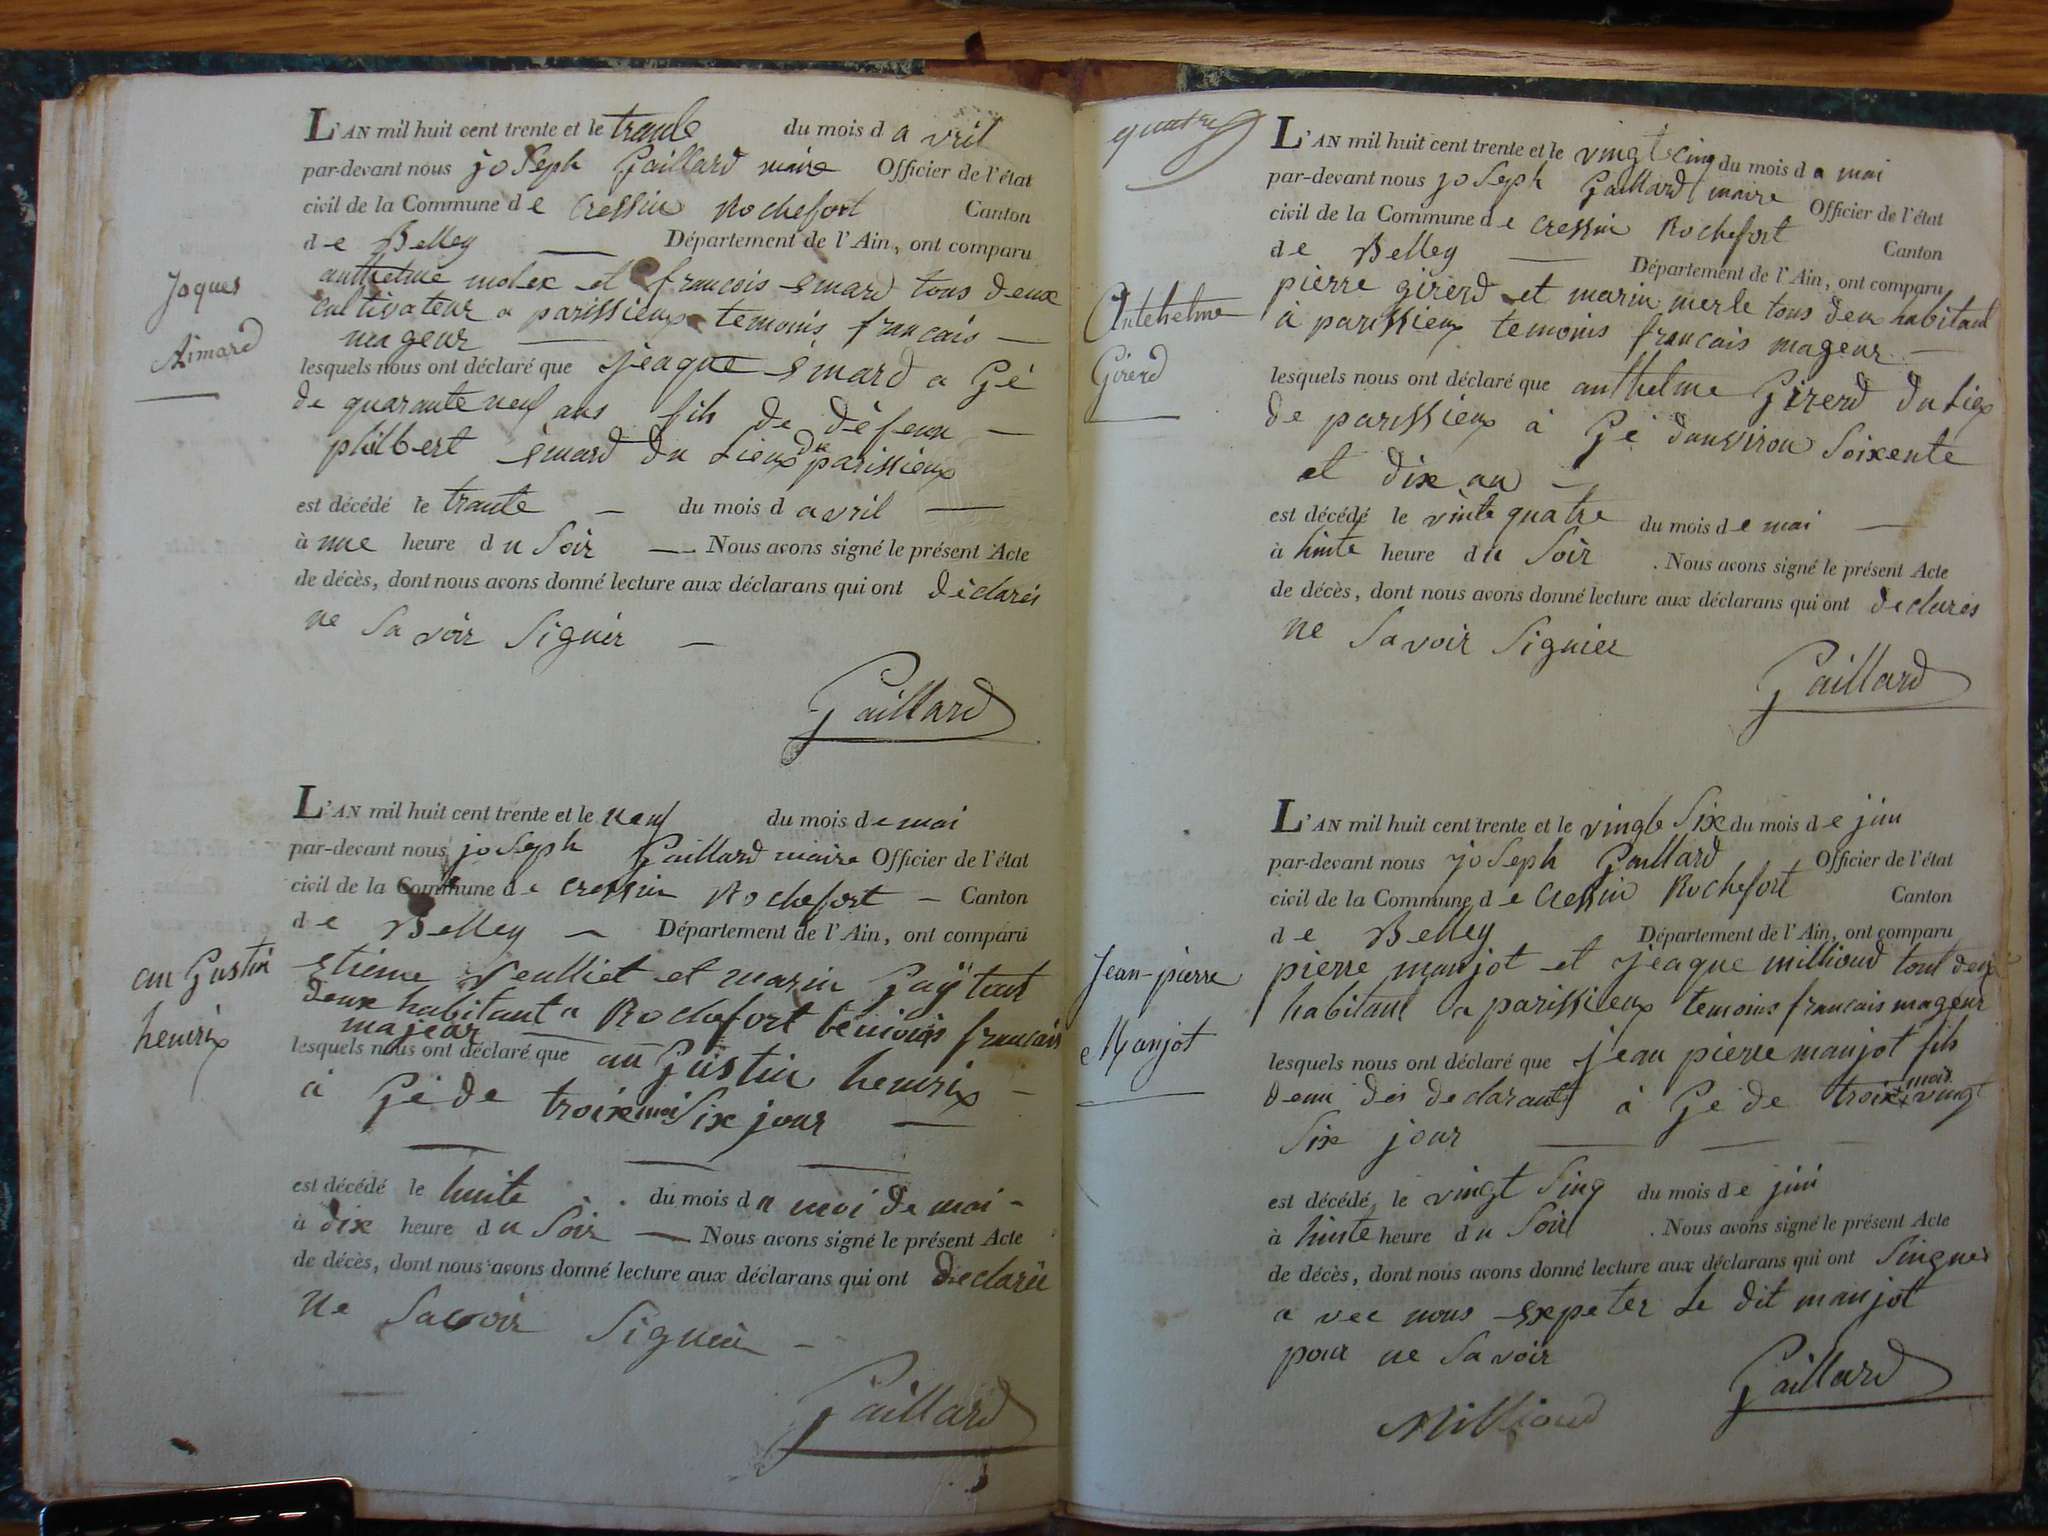 L'AN mil huit cent trente et le trante du mois d avril
par-devant nous joseph Gaillard maire Officier de l'état
civil de la Commune de Cressin Rochefort Canton
de Belley Département de l'Ain, ont comparu
anthelme molex et francois émard tous deux
cultivateur a parissieux temoins francais
mageur
Jaques
Aimard
lesquels nous ont déclaré que jeaque émard a Gé
de quarante neuf ans fils de défeun
philbert émard du Lieux de parissieux
est décédé le trante du mois d avril
à une heure du soir Nous avons signé le présent Acte
de décès, dont nous avons donné lecture aux déclarans qui ont déclarés
ne savoir signier
Gaillard
L'AN mil huit cent trente et le neuf du mois de mai
par-devant nous joseph Gaillard maire Officier de l'état
civil de la Commune de cressin Rochefort Canton
de Belley Département de l'Ain, ont comparu
au Gustin
henrix
etiene veulliet et marin Gaÿ tout
deux habitant a Rochefort temoins francais
majeur
lesquels nous ont déclaré que au Gustin henrix
à Gé de troix moi six jour
est décédé le huite du mois du moi de mai
à dix heure du soir Nous avons signé le présent Acte
de décès, dont nous avons donné lecture aux déclarans qui ont declaré
ne savoir signié
Gaillard
quatre
L'AN mil huit cent trente et le vingt cinq du mois d a mai
par-devant nous joseph Gaillard maire Officier de l'état
civil de la Commune de cressin Rochefort Canton
de Belley Département de l'Ain, ont comparu
Antehelme
Girerd
pierre girerd et marin merle tous deux habitant
à parissieux temoins francais mageur
lesquels nous ont déclaré que anthelme Girerd du Liex
de parissieux à Gé danviron soixente
et dix an
est décédé le vinte quatre du mois de mai
à huite heure du soir . Nous avons signé le présent Acte
de décès, dont nous avons donné lecture aux déclarans qui ont declares
ne savoir signier
Gaillard
L'AN mil huit cent trente et le vingt six du mois de juin
par-devant nous joseph Gaillard Officier de l'état
civil de la Commune de cressin Rochefort Canton
de Belley Département de l'Ain, ont comparu
Jean-pierre
Manjot
pierre manjot et jeaque millioud tout deux
habitant a parissieux temoins francais mageur
lesquels nous ont déclaré que jean pierre manjot fils
deun des declarant à Gé de troix mois vingt
six jour
est décédé le vingt sinq du mois de juin
à huite heure du soir . Nous avons signé le présent Acte
de décès, dont nous avons donné lecture aux déclarans qui ont singner
a vec nous expeter Le dit manjot
pour ne savoir
Gaillard
Millioud